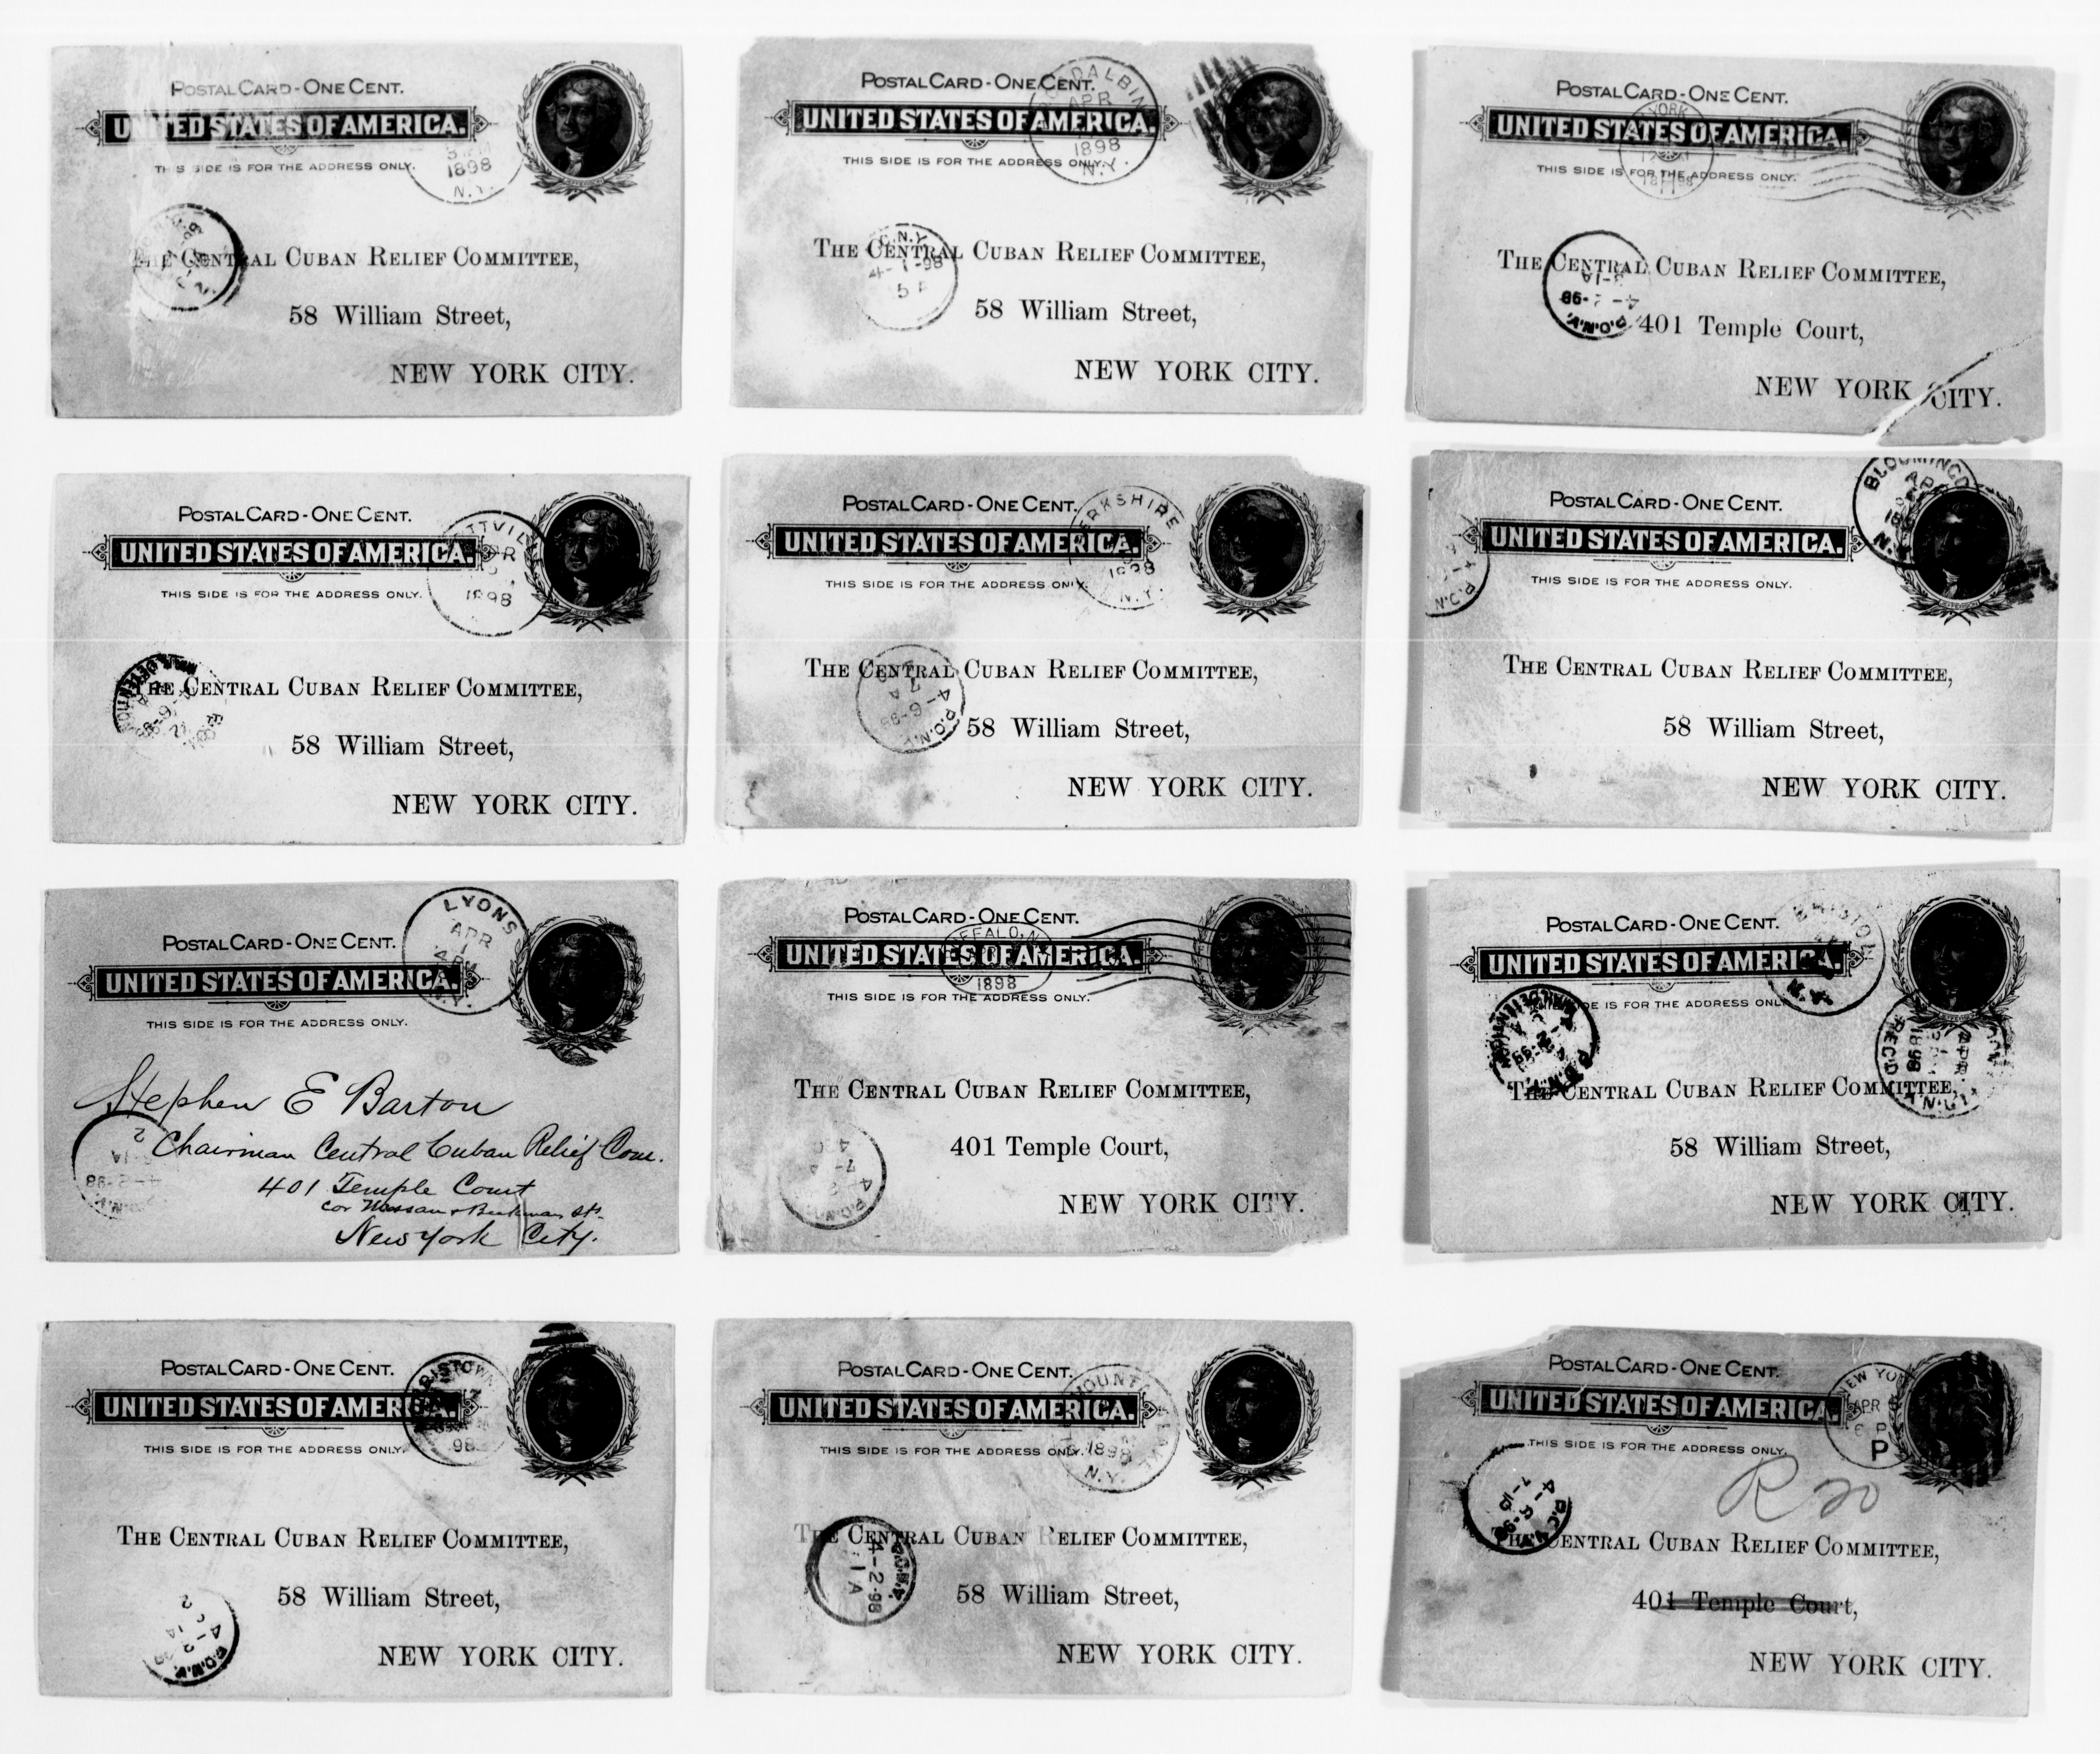 POSTAL CARD - ONE CENT.
UNITED STATES OF AMERICA.
THIS SIDE IS FOR THE ADDRESS ONLY.
1898
N.Y.
THE CENTRAL CUBAN RELIEF COMMITTEE,
58 William Street,
NEW YORK CITY.
POSTAL CARD - ONE CENT.
UNITED STATES OF AMERICA.
THIS SIDE IS FOR THE ADDRESS ONLY.
APR
1898
N.Y.
THE CENTRAL CUBAN RELIEF COMMITTEE,
4-1-98
58 William Street,
NEW YORK CITY.
POSTAL CARD - ONE CENT.
UNITED STATES OF AMERICA.
THIS SIDE IS FOR THE ADDRESS ONLY.
YORK
THE CENTRAL CUBAN RELIEF COMMITTEE,
P.O.N.Y.
401 Temple Court,
NEW YORK CITY.
POSTAL CARD - ONE CENT.
UNITED STATES OF AMERICA.
THIS SIDE IS FOR THE ADDRESS ONLY.
1898
THE CENTRAL CUBAN RELIEF COMMITTEE,
58 William Street,
NEW YORK CITY.
POSTAL CARD - ONE CENT.
UNITED STATES OF AMERICA.
THIS SIDE IS FOR THE ADDRESS ONLY.
1898
N.Y.
THE CENTRAL CUBAN RELIEF COMMITTEE,
4-6-98
P.O.N.Y.
58 William Street,
NEW YORK CITY.
POSTAL CARD - ONE CENT.
UNITED STATES OF AMERICA.
THIS SIDE IS FOR THE ADDRESS ONLY.
APR
N.Y.
THE CENTRAL CUBAN RELIEF COMMITTEE,
58 William Street,
NEW YORK CITY.
LYONS
APR
1
POSTAL CARD - ONE CENT.
UNITED STATES OF AMERICA.
THIS SIDE IS FOR THE ADDRESS ONLY.
Stephen E Barton
Chairman Central Cuban Relief Com.
401 Temple Court
cor Nassau & Beekman Sts.
New York City.
POSTAL CARD - ONE CENT.
UNITED STATES OF AMERICA.
1898
THIS SIDE IS FOR THE ADDRESS ONLY.
THE CENTRAL CUBAN RELIEF COMMITTEE,
401 Temple Court,
P.O.N.Y.
NEW YORK CITY.
POSTAL CARD - ONE CENT.
UNITED STATES OF AMERICA.
SIDE IS FOR THE ADDRESS ONLY
REC'D
THE CENTRAL CUBAN RELIEF COMMITTEE,
58 William Street,
NEW YORK CITY.
POSTAL CARD - ONE CENT.
UNITED STATES OF AMERICA.
THIS SIDE IS FOR THE ADDRESS ONLY.
98
THE CENTRAL CUBAN RELIEF COMMITTEE,
58 William Street,
P.O.N.Y.
NEW YORK CITY.
POSTAL CARD - ONE CENT.
UNITED STATES OF AMERICA.
THIS SIDE IS FOR THE ADDRESS ONLY.
1898
N.Y.
THE CENTRAL CUBAN RELIEF COMMITTEE,
P.O.N.Y.
4-2-98
1A
58 William Street,
NEW YORK CITY.
POSTAL CARD - ONE CENT.
UNITED STATES OF AMERICA.
NEW YORK
APR
P
THIS SIDE IS FOR THE ADDRESS ONLY.
R 20
THE CENTRAL CUBAN RELIEF COMMITTEE,
401 Temple Court,
NEW YORK CITY.